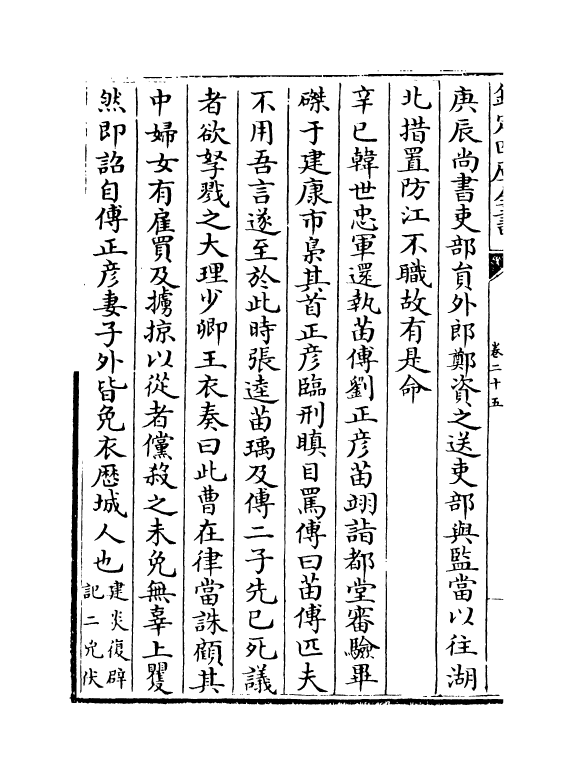 欽定四庫全書
卷二十五
庚辰尚書吏部員外郎鄭資之送吏部與監當以往湖
北措置防江不職故有是命
辛巳韓世忠軍還執苗傅劉正彦苗翊詣都堂審驗畢
磔于建康市梟其首正彦臨刑瞋目罵傅曰苗傅匹夫
不用吾言遂至於此時張逵苗瑀及傅二子先已死議
者欲孥戮之大理少卿王衣奏曰此曹在律當誅顧其
中婦女有雇買及擄掠以從者儻殺之未免無辜上矍
然即詔自傅正彦妻子外皆免衣歴城人也建炎復辟
記二兇伏